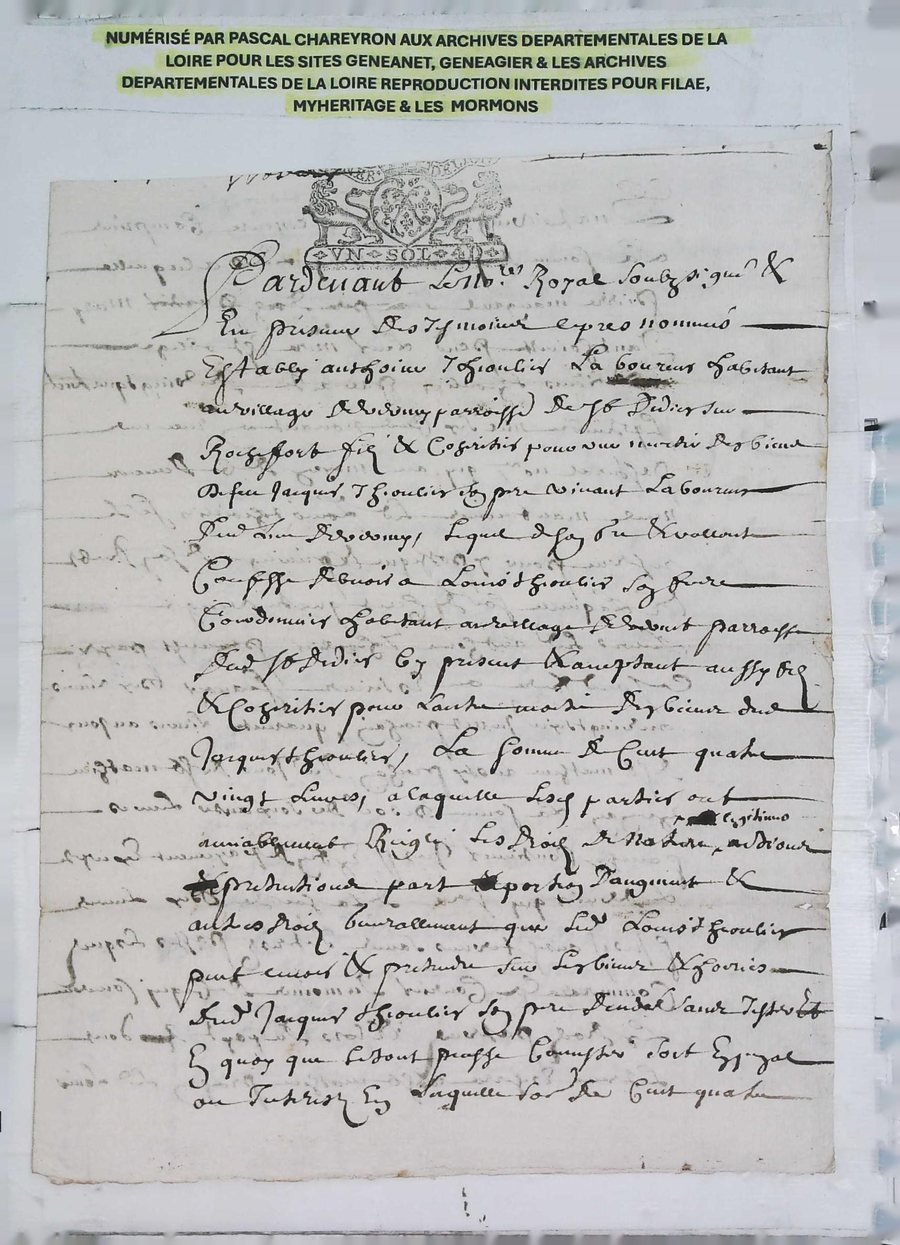 NUMÉRISÉ PAR PASCAL CHAREYRON AUX ARCHIVES DEPARTEMENTALES DE LA
LOIRE POUR LES SITES GENEANET, GENEAGIER & LES ARCHIVES
DEPARTEMENTALES DE LA LOIRE REPRODUCTION INTERDITES POUR FILAE,
MYHERITAGE & LES MORMONS
VN SOL 4D
Pardevant Le No.re Royal soubzsigné &
En presence des tesmoins apres nommés
Estably anthoine thioulier Laboureur habitant
au village de parroisse de st Didier sur
Rocheffort filz & Coheritier pour une moitié des biens
de feu Jacques thioulier son pere vivant Laboureur
dud. Lieu de lequel de son gré & vollonté
Confesse debvoir a Louis thioulier son frere
Courdonnier habitant au village parroisse
dud. st Didier Cy present & acceptant aussy filz
& Coheritier pour lautre moitié des biens dud.
Jacques thioulier, La somme de Cent quatre
vingt Livres, a laquelle lesd. parties ont
legitime
amiablement les droitz de nature, actions
pretentions part portion daugment &
autres droitz generallement que led. Louis thioulier
peut avoir & pretendre sur les biens & hoiries
dud. Jacques thioulier son pere decedé sans tester
En quoy que le tout puisse Consister soit En principal
ou Interestz En Laquelle som.e de Cent quatre